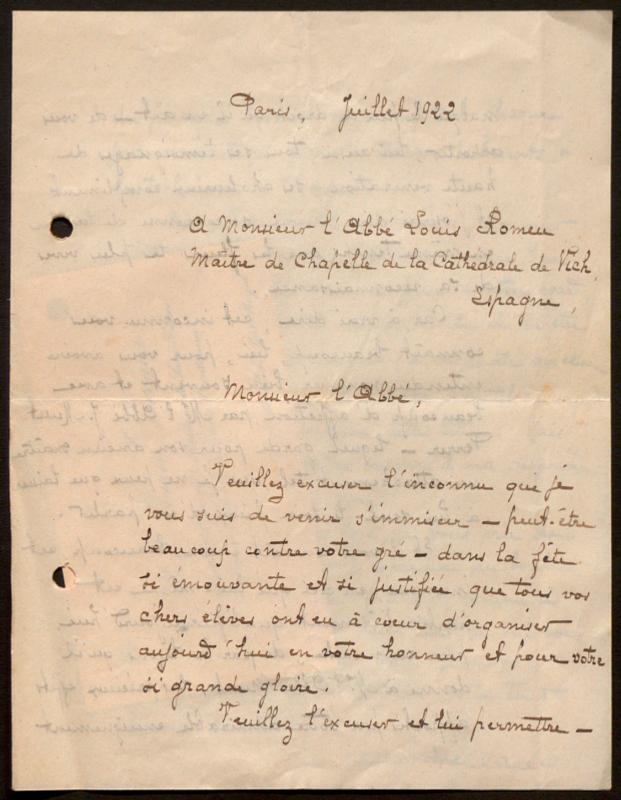 Paris, Juillet 1922
A Monsieur l'Abbé Louis Romeu
Maître de Chapelle de la Cathédrale de Vich,
Espagne,
Monsieur l'Abbé,
Veuillez excuser l'inconnu que je
vous suis de venir s'immiscer — peut-être
beaucoup contre votre gré — dans la fête
si émouvante et si justifiée que tous vos
chers élèves ont eu à coeur d'organiser
aujourd'hui en votre honneur et pour votre
si grande gloire.
Veuillez l'excuser et lui permettre —